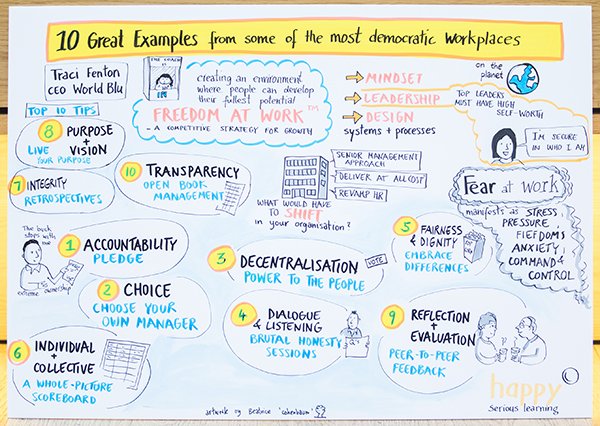 10 Great Examples from some of the most democratic workplaces
on the planet
Traci Fenton
CEO World Blu
THE COACH
IS IN
creating an environment
where people can develop
their fullest potential
FREEDOM AT WORK™
- A COMPETITIVE STRATEGY FOR GROWTH
MINDSET
LEADERSHIP
DESIGN
systems + processes
TOP LEADERS
MUST HAVE HIGH
SELF-WORTH
I'M SECURE
IN WHO I AM
TOP 10 TIPS
8 PURPOSE
+
VISION
LIVE
YOUR PURPOSE
7 INTEGRITY
RETROSPECTIVES
10 TRANSPARENCY
OPEN BOOK
MANAGEMENT
SENIOR MANAGEMENT
APPROACH
DELIVER AT ALL COST
REVAMP HR
WHAT WOULD HAVE
TO SHIFT
in your organisation?
Fear at work
manifests as STRESS
PRESSURE,
FIEFDOMS
ANXIETY,
COMMAND &
CONTROL
The buck
stops with
me
extreme ownership
1 ACCOUNTABILITY
PLEDGE
2 CHOICE
CHOOSE YOUR
OWN MANAGER
3 DECENTRALISATION
POWER TO THE PEOPLE
VOTE
5 FAIRNESS
& DIGNITY
EMBRACE
DIFFERENCES
4 DIALOGUE
& LISTENING
BRUTAL HONESTY
SESSIONS
9 REFLECTION
+
EVALUATION
PEER-TO-PEER
FEEDBACK
6 INDIVIDUAL
+
COLLECTIVE
A WHOLE-PICTURE
SCOREBOARD
happy
serious learning
artwork by Beatrice